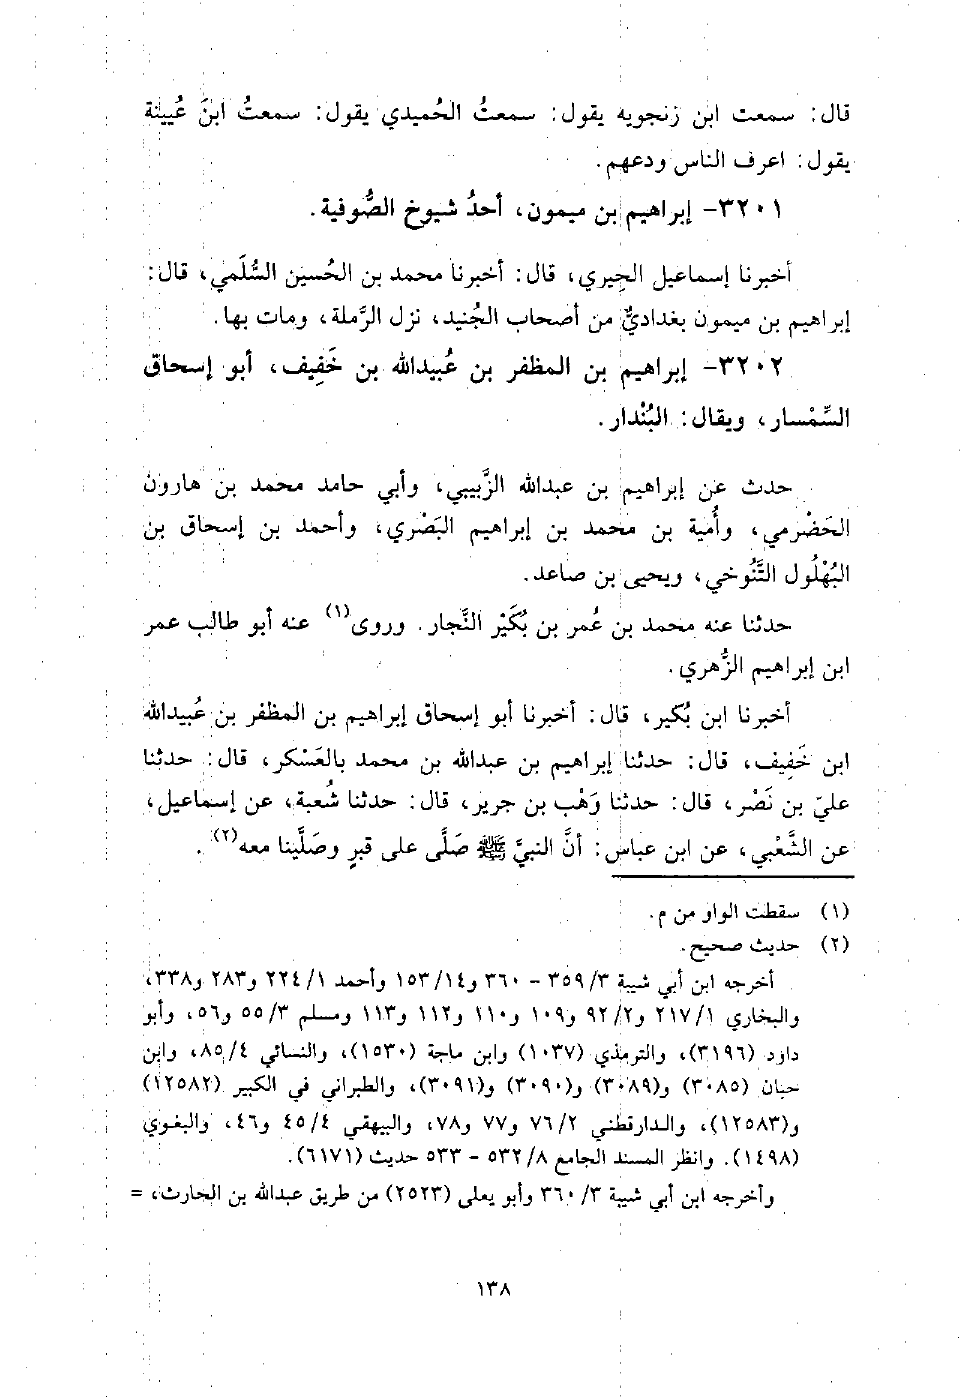 قال: سمعت ابن زنجويه يقول: سمعتُ الحُميدي يقول: سمعتُ ابنَ عُيينة
يقول: اعرف الناس ودعهم.
٣٢٠١- إبراهيم بن ميمون، أحدُ شيوخ الصُّوفية.
أخبرنا إسماعيل الحِيري، قال: أخبرنا محمد بن الحُسين السُّلَمي، قال:
إبراهيم بن ميمون بغداديٌّ من أصحاب الجُنيد، نزل الرَّملة، ومات بها.
٣٢٠٢- إبراهيم بن المظفر بن عُبيدالله بن خَفِيف، أبو إسحاق
السِّمْسار، ويقال: البُنْدار.
حدث عن إبراهيم بن عبدالله الزَّبيبي، وأبي حامد محمد بن هارون
الحَضْرمي، وأُمية بن محمد بن إبراهيم البَصْري، وأحمد بن إسحاق بن
البُهْلُول التَّنُوخي، ويحيى بن صاعد.
حدثنا عنه محمد بن عُمر بن بُكَيْر النَّجار. وروى(١) عنه أبو طالب عمر
ابن إبراهيم الزُّهري.
أخبرنا ابن بُكير، قال: أخبرنا أبو إسحاق إبراهيم بن المظفر بن عُبيدالله
ابن خَفِيف، قال: حدثنا إبراهيم بن عبدالله بن محمد بالعَسْكر، قال: حدثنا
عليّ بن نَصْر، قال: حدثنا وَهْب بن جرير، قال: حدثنا شُعبة، عن إسماعيل،
عن الشَّعْبي، عن ابن عباس: أنَّ النبيَّ ﷺ صَلَّى على قبرٍ وصَلَّينا معه(٢).
(١) سقطت الواو من م.
(٢) حديث صحيح.
أخرجه ابن أبي شيبة ٣/ ٣٥٩ - ٣٦٠ و١٤/ ١٥٣ وأحمد ١/ ٢٢٤ و٢٨٣ و٣٣٨،
والبخاري ١/ ٢١٧ و٢/ ٩٢ و١٠٩ و١١٠ و١١٢ و١١٣ ومسلم ٣/ ٥٥ و٥٦، وأبو
داود (٣١٩٦)، والترمذي (١٠٣٧) وابن ماجة (١٥٣٠)، والنسائي ٤/ ٨٥، وابن
حبان (٣٠٨٥) و(٣٠٨٩) و(٣٠٩٠) و(٣٠٩١)، والطبراني في الكبير (١٢٥٨٢)
و(١٢٥٨٣)، والدارقطني ٢/ ٧٦ و٧٧ و٧٨، والبيهقي ٤/ ٤٥ و٤٦، والبغوي
(١٤٩٨). وانظر المسند الجامع ٨/ ٥٣٢ - ٥٣٣ حديث (٦١٧١).
وأخرجه ابن أبي شيبة ٣/ ٣٦٠ وأبو يعلى (٢٥٢٣) من طريق عبدالله بن الحارث، =
١٣٨